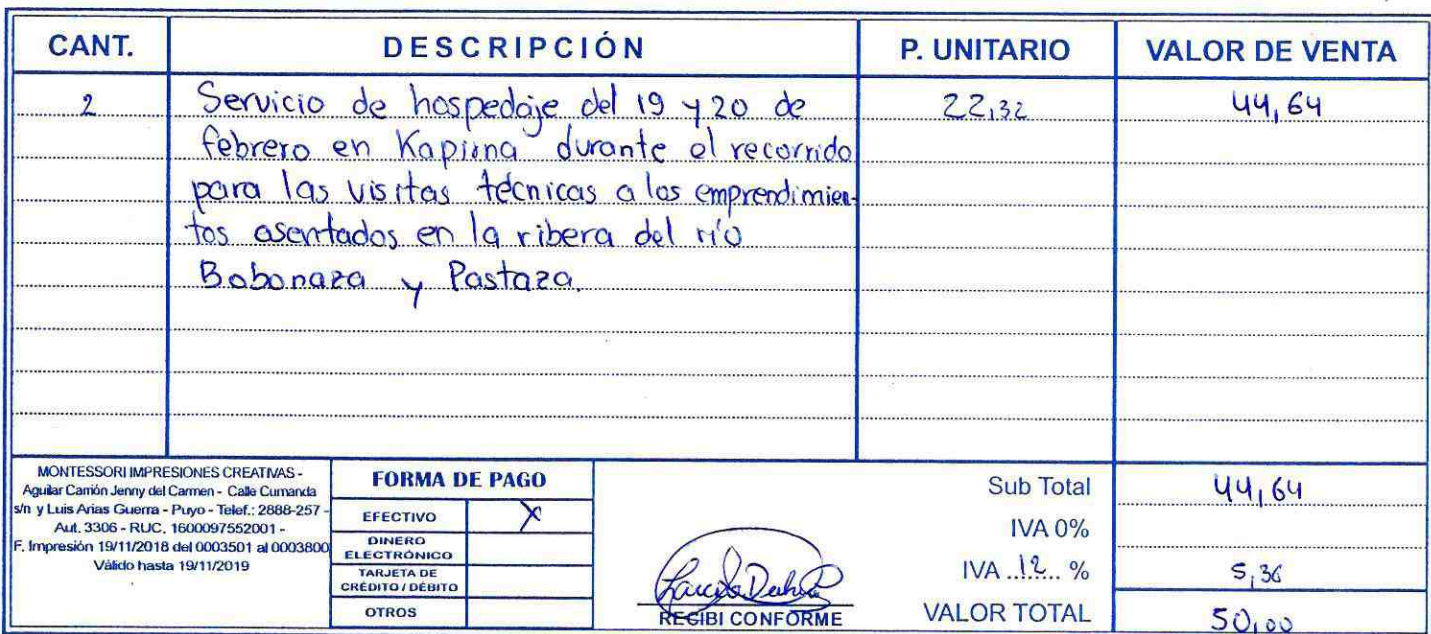 CANT. DESCRIPCIÓN P. UNITARIO VALOR DE VENTA
2 Servicio de hospedaje del 19 y 20 de 22,32 44,64
febrero en Kapiina durante el recorrido
para las visitas técnicas a los emprendimien-
tos asentados en la ribera del río
Bobonaza y Pastaza.
MONTESSORI IMPRESIONES CREATIVAS -
Aguilar Carrión Jenny del Carmen - Calle Cumanda
s/n y Luis Arias Guerra - Puyo - Telef.: 2888-257 -
Aut. 3306 - RUC. 1600097552001 -
F. Impresión 19/11/2018 del 0003501 al 0003800
Válido hasta 19/11/2019
FORMA DE PAGO
EFECTIVO X
DINERO
ELECTRÓNICO
TARJETA DE
CRÉDITO / DÉBITO
OTROS
RECIBI CONFORME
Sub Total 44,64
IVA 0%
IVA 12 % 5,36
VALOR TOTAL 50,00